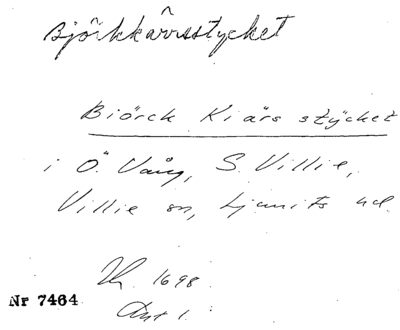 Björkkärrsstycket
Biörck Kiärs stÿcket
i Ö. Vång, S. Villie,
Villie sn, Ljunits hd.
1698
Nr 7464
Akt 1.